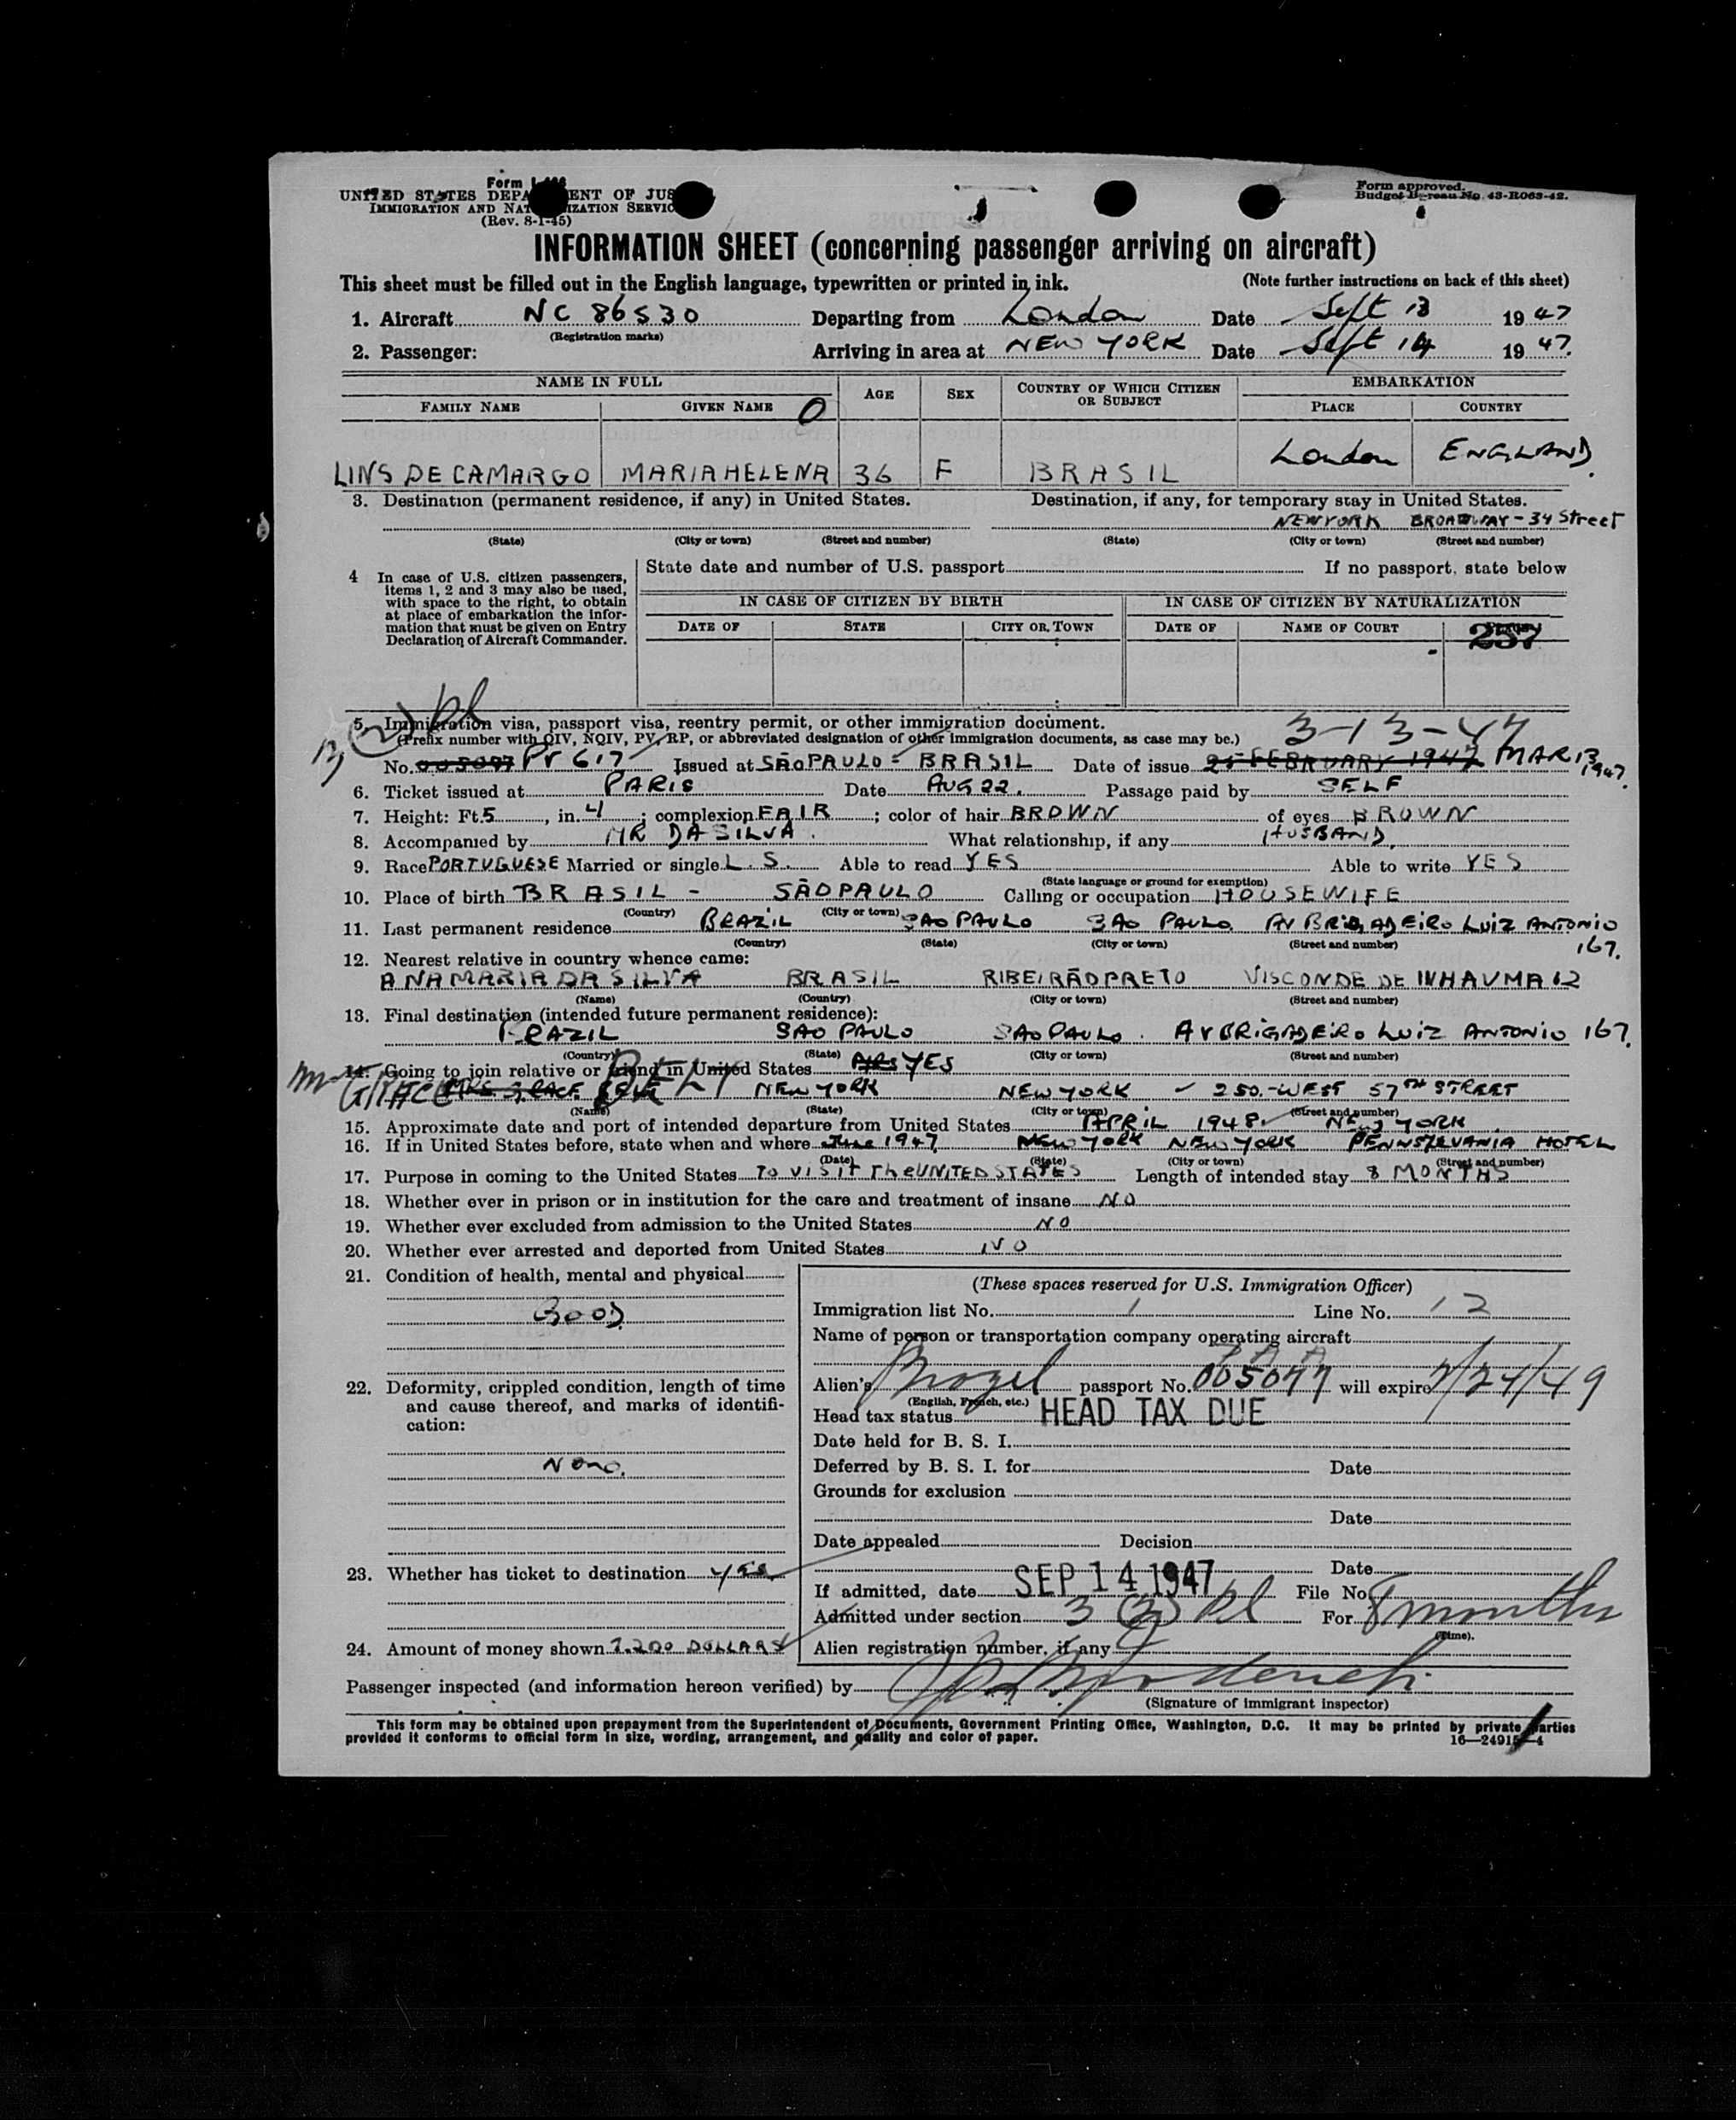 Form I-466
UNITED STATES DEPARTMENT OF JUS
IMMIGRATION AND NATURALIZATION SERVIC
(Rev. 8-1-45)
Form approved.
Budget Bureau No. 43-R063-42.
INFORMATION SHEET (concerning passenger arriving on aircraft)
This sheet must be filled out in the English language, typewritten or printed in ink. (Note further instructions on back of this sheet)
1. Aircraft NC 86530 Departing from London Date Sept 13 1947
(Registration marks)
2. Passenger: Arriving in area at NEW YORK Date Sept 14 1947.
NAME IN FULL AGE SEX COUNTRY OF WHICH CITIZEN OR SUBJECT EMBARKATION
FAMILY NAME GIVEN NAME O PLACE COUNTRY
LINS DE CAMARGO MARIA HELENA 36 F BRASIL London ENGLAND.
3. Destination (permanent residence, if any) in United States. Destination, if any, for temporary stay in United States.
NEW YORK BROADWAY-34 Street
(State) (City or town) (Street and number) (State) (City or town) (Street and number)
4 In case of U.S. citizen passengers, items 1, 2 and 3 may also be used, with space to the right, to obtain at place of embarkation the information that must be given on Entry Declaration of Aircraft Commander.
State date and number of U.S. passport If no passport, state below
IN CASE OF CITIZEN BY BIRTH IN CASE OF CITIZEN BY NATURALIZATION
DATE OF STATE CITY OR TOWN DATE OF NAME OF COURT
257
5. Immigration visa, passport visa, reentry permit, or other immigration document. 3-13-47
(Prefix number with QIV, NQIV, PV, RP, or abbreviated designation of other immigration documents, as case may be.)
No. 005077 PV 617 Issued at SÃO PAULO - BRASIL Date of issue 25 FEBRUARY 1947 MAR 13 1947.
6. Ticket issued at PARIS Date AUG 22. Passage paid by SELF
7. Height: Ft. 5, in. 4; complexion FAIR; color of hair BROWN of eyes BROWN
8. Accompanied by MR DA SILVA. What relationship, if any HUSBAND.
9. Race PORTUGUESE Married or single L.S. Able to read YES Able to write YES
(State language or ground for exemption)
10. Place of birth BRASIL - SÃO PAULO Calling or occupation HOUSEWIFE
(Country) (City or town)
11. Last permanent residence BRAZIL SAO PAULO SAO PAULO. AV BRIGADEIRO LUIZ ANTONIO 167.
(Country) (State) (City or town) (Street and number)
12. Nearest relative in country whence came:
ANA MARIA DA SILVA BRASIL RIBEIRÃO PRETO VISCONDE DE INHAUMA 12
(Name) (Country) (City or town) (Street and number)
13. Final destination (intended future permanent residence):
BRAZIL SAO PAULO SAO PAULO. AV BRIGADEIRO LUIZ ANTONIO 167.
(Country) (State) (City or town) (Street and number)
14. Going to join relative or friend in United States YES
GRACE NEW YORK NEW YORK - 250-WEST 57TH STREET
(Name) (State) (City or town) (Street and number)
15. Approximate date and port of intended departure from United States APRIL 1948. NEW YORK
16. If in United States before, state when and where June 1947, NEW YORK NEW YORK PENNSYLVANIA HOTEL
(Date) (State) (City or town) (Street and number)
17. Purpose in coming to the United States TO VISIT THE UNITED STATES Length of intended stay 8 MONTHS
18. Whether ever in prison or in institution for the care and treatment of insane NO
19. Whether ever excluded from admission to the United States NO
20. Whether ever arrested and deported from United States NO
21. Condition of health, mental and physical
GOOD.
22. Deformity, crippled condition, length of time and cause thereof, and marks of identification:
None.
23. Whether has ticket to destination yes
24. Amount of money shown 7.200 DOLLARS
(These spaces reserved for U.S. Immigration Officer)
Immigration list No. 1 Line No. 12
Name of person or transportation company operating aircraft
Alien's Brazil passport No. 005077 will expire 2/24/49
(English, French, etc.)
Head tax status HEAD TAX DUE
Date held for B. S. I.
Deferred by B. S. I. for Date
Grounds for exclusion
Date
Date appealed Decision
Date
If admitted, date SEP 14 1947 File No.
Admitted under section 3 (2) For 8 months
(Time).
Alien registration number, if any
Passenger inspected (and information hereon verified) by
(Signature of immigrant inspector)
This form may be obtained upon prepayment from the Superintendent of Documents, Government Printing Office, Washington, D.C. It may be printed by private parties
provided it conforms to official form in size, wording, arrangement, and quality and color of paper. 16—24915-4